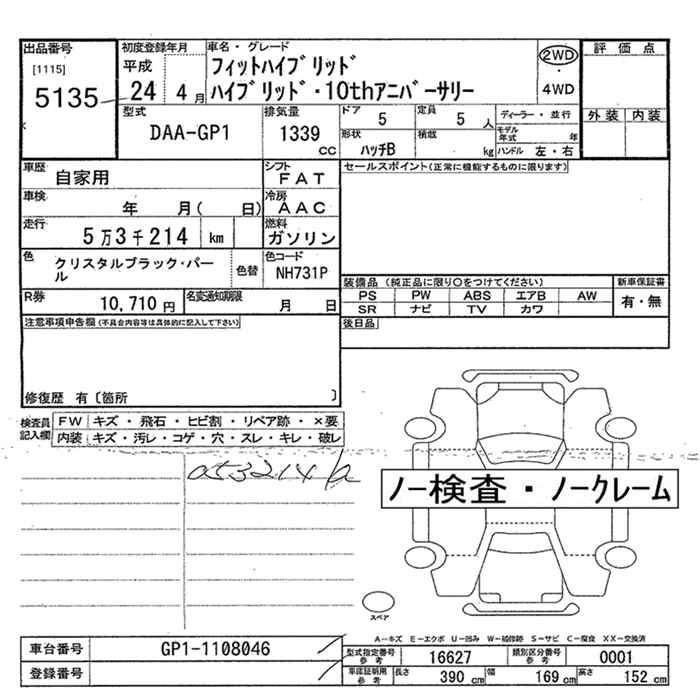 出品番号
[1115]
5135
初度登録年月
平成
24 4月
車名・グレード
フィットハイブリッド
ハイブリッド・10thアニバーサリー
2WD
・
4WD
評価点
外装 内装
型式
DAA-GP1
排気量
1339
CC
ドア
5
定員
5 人
形状
ハッチB
積載
kg
ディーラー・並行
モデル年式 年
ハンドル 左・右
車歴
自家用
シフト
FAT
車検
年 月( 日)
冷房
AAC
走行
5万3千214 km
燃料
ガソリン
色
クリスタルブラック・パール
色替
色コード
NH731P
R券
10,710 円
名変通知期限
月 日
セールスポイント(正常に機能するものに限ります)
装備品 (純正品に限り○をつけてください)
PS PW ABS エアB AW
SR ナビ TV カワ
新車保証書
有・無
後日品
注意事項申告欄(不具合内容等は具体的に記入して下さい)
修復歴 有〔箇所 〕
検査員記入欄
FW キズ・飛石・ヒビ割・リペア跡・×要
内装 キズ・汚レ・コゲ・穴・スレ・キレ・破レ
053214k
ノー検査・ノークレーム
スペア
A−キズ E−エクボ U−凹み W−補修跡 S−サビ C−腐食 XX−交換済
車台番号
GP1-1108046
登録番号
型式指定番号
参考
16627
類別区分番号
参考
0001
車庫証明用
参考
長さ
390 cm
幅
169 cm
高さ
152 cm